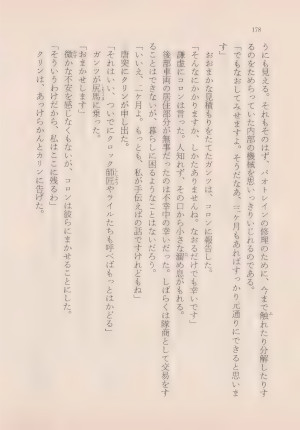 178
うにも見える。それもそのはず、パオトレインの修理のために、今まで触れたり分解したりす
るのをためらっていた内部の機械を思いっきりいじれるのである。
「でもなおしてみせますよ。そうだなあ、二ヶ月もあればすっかり元通りにできると思いま
す」
おおまかな見積もりをたてたガンツは、コロンに報告した。
「そんなにかかりますか。しかたありませんね。なおるだけでも幸いです」
謙虚にコロンは言った。人知れず、その口から小さな溜め息がもれる。
後部車両の居住部分が無事だったのは不幸中の幸いだった。しばらくは隊商として交易をす
ることはできないが、暮らしに困るようなことはないだろう。
「いいえ、二ヶ月よ。もっとも、私が手伝えばの話ですけれどもね」
唐突にクリンが申し出た。
「それはいい。ついでにクロック師匠やライルたちも呼べばもっとはかどる」
ガンツが尻馬に乗った。
「おまかせします」
微かな不安を感じなくもないが、コロンは彼らにまかせることにした。
「そういうわけだから、私はここに残るわ」
クリンは、あっけらかんとカリンに告げた。